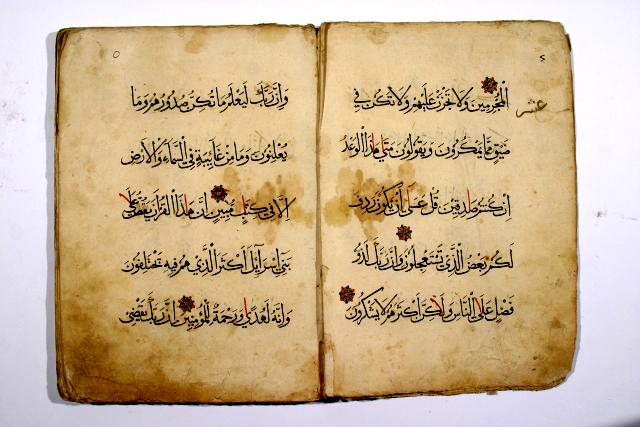 ٤
المجرمين ولا تحزن عليهم ولا تكن في
عشر
ضيق مما يمكرون ويقولون متى هذا الوعد
ان كنتم صادقين قل عسى ان يكون ردف
لكم بعض الذي تستعجلون وان ربك لذو
فضل على الناس ولكن اكثرهم لا يشكرون
٥
وان ربك ليعلم ما تكن صدورهم وما
يعلنون وما من غائبة في السماء والارض
الا في كتب مبين ان هذا القران يقص على
بني اسرائل اكثر الذي هم فيه يختلفون
وانه لهدى ورحمة للمؤمنين ان ربك يقضي